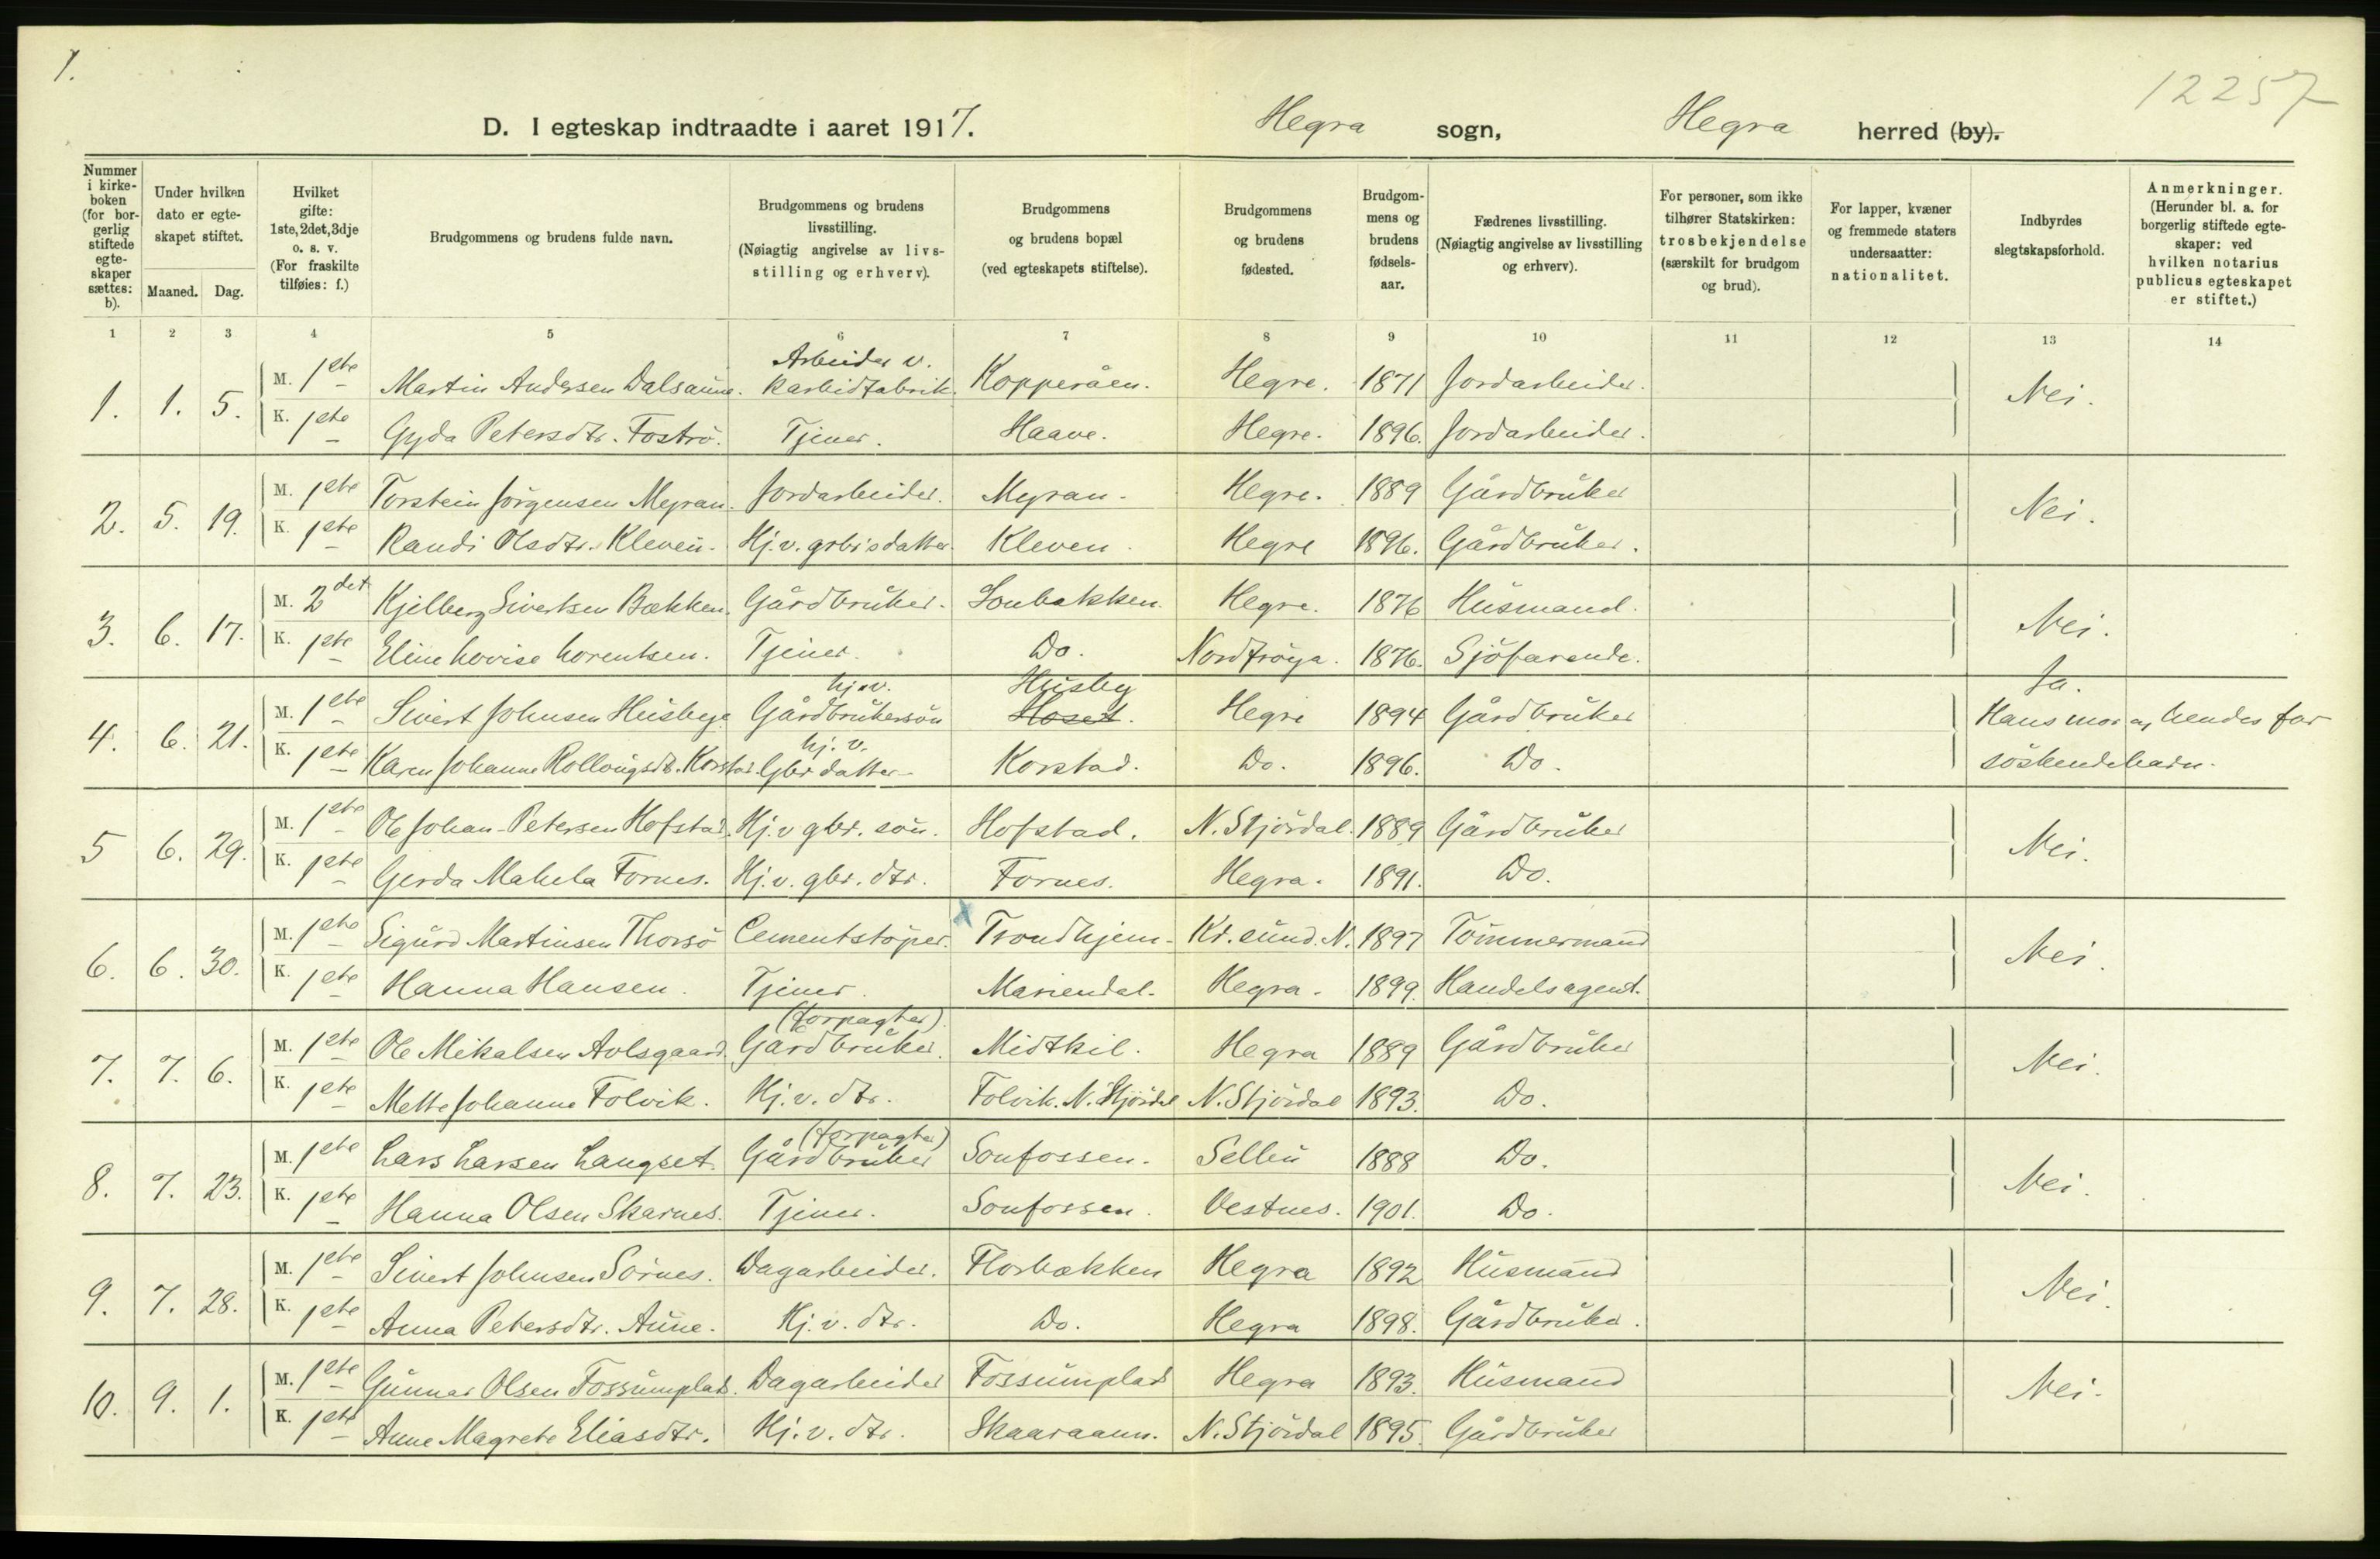 1.
12257
D. I egteskap indtraadte i aaret 1917. Hegra sogn, Hegra herred (by).
Nummer i kirke-boken (for bor-gerlig stiftede egte-skaper sættes: b).
Under hvilken dato er egte-skapet stiftet.
Maaned. Dag.
Hvilket gifte: 1ste, 2det, 3dje o. s. v. (For fraskilte tilføies: f.)
Brudgommens og brudens fulde navn.
Brudgommens og brudens livsstilling. (Nøiagtig angivelse av livs-stilling og erhverv).
Brudgommens og brudens bopæl (ved egteskapets stiftelse).
Brudgommens og brudens fødested.
Brudgom-mens og brudens fødsels-aar.
Fædrenes livsstilling. (Nøiagtig angivelse av livsstilling og erhverv).
For personer, som ikke tilhører Statskirken: trosbekjendelse (særskilt for brudgom og brud).
For lapper, kvæner og fremmede staters undersaatter: nationalitet.
Indbyrdes slegtskapsforhold.
Anmerkninger. (Herunder bl. a. for borgerlig stiftede egte-skaper: ved hvilken notarius publicus egteskapet er stiftet.)
1 2 3 4 5 6 7 8 9 10 11 12 13 14
1. 1. 5. M. 1ste Martin Andersen Dalsaune. Arbeider v. karbidfabrik. Kopperåen. Hegre. 1871 Jordarbeider. Nei.
K. 1ste Gyda Petersdtr. Fostrø. Tjener. Haave. Hegre. 1896. Jordarbeider.
2. 5. 19. M. 1ste Torstein Jørgensen Myran. Jordarbeider. Myran. Hegre. 1889 Gårdbruker Nei.
K. 1ste Randi Olsdtr. Kleven. Hj.v. grbr's datter. Kleven. Hegre 1896. Gårdbruker.
3. 6. 17. M. 2det Kjelberg Sivertsen Bækken. Gårdbruker. Sonbækken. Hegre. 1876 Husmand. Nei.
K. 1ste Eline Lovise Lorentsen. Tjener. Do. Nordfrøya. 1876. Sjøfarende.
4. 6. 21. M. 1ste Sivert Johnsen Husbye hj.v. Gårdbrukersøn Husby Hoset. Hegre 1894 Gårdbruker Ja. Hans mor og hendes far
K. 1ste Karen Johanne Rollougsdt. Korstad. hj.v. Gbr datter Korstad. Do. 1896. Do. søskendebarn.
5 6. 29. M. 1ste Ole Johan Petersen Hofstad. Hj.v gbr. søn. Hofstad. N. Stjørdal. 1889 Gårdbruker Nei.
K. 1ste Gerda Makela Fornes. Hj.v. gbr. dtr. Fornes. Hegra. 1891. Do.
6. 6. 30. M. 1ste Sigurd Martinsen Thorsø Cementstøper. x Trondhjem. Kr.sund. N. 1897 Tømmermand Nei.
K. 1ste Hanna Hansen. Tjener. Mariendal. Hegra. 1899. Handelsagent.
7. 7. 6. M. 1ste Ole Mikalsen Avlsgaard. (forpagter) Gårdbruker. Midtkil. Hegra 1889 Gårdbruker Nei.
K. 1ste Mette Johanne Folvik. Hj.v. dtr. Folvik. N. Stjørdal N. Stjørdal 1893. Do.
8. 7. 23. M. 1ste Lars Larsen Langset. (forpagter) Gårdbruker Sonfossen. Selleu 1888 Do. Nei.
K. 1ste Hanna Olsen Skarnes. Tjener. Sonfossen. Vestnes. 1901. Do.
9. 7. 28. M. 1ste Sivert Johnsen Sørnes. Dagarbeider. Florbækken Hegra 1892 Husmand Nei.
K. 1ste Anna Petersdtr. Aune. Hj.v. dtr. Do. Hegra 1898. Gårdbruker.
10. 9. 1. M. 1ste Gunnar Olsen Fossumplads. Dagarbeider Fossumplads Hegra 1893. Husmand Nei.
K. 1ste Anne Magrete Eliasdtr. Hj.v. dtr. Skaaraaun. N. Stjørdal 1895. Gårdbruker